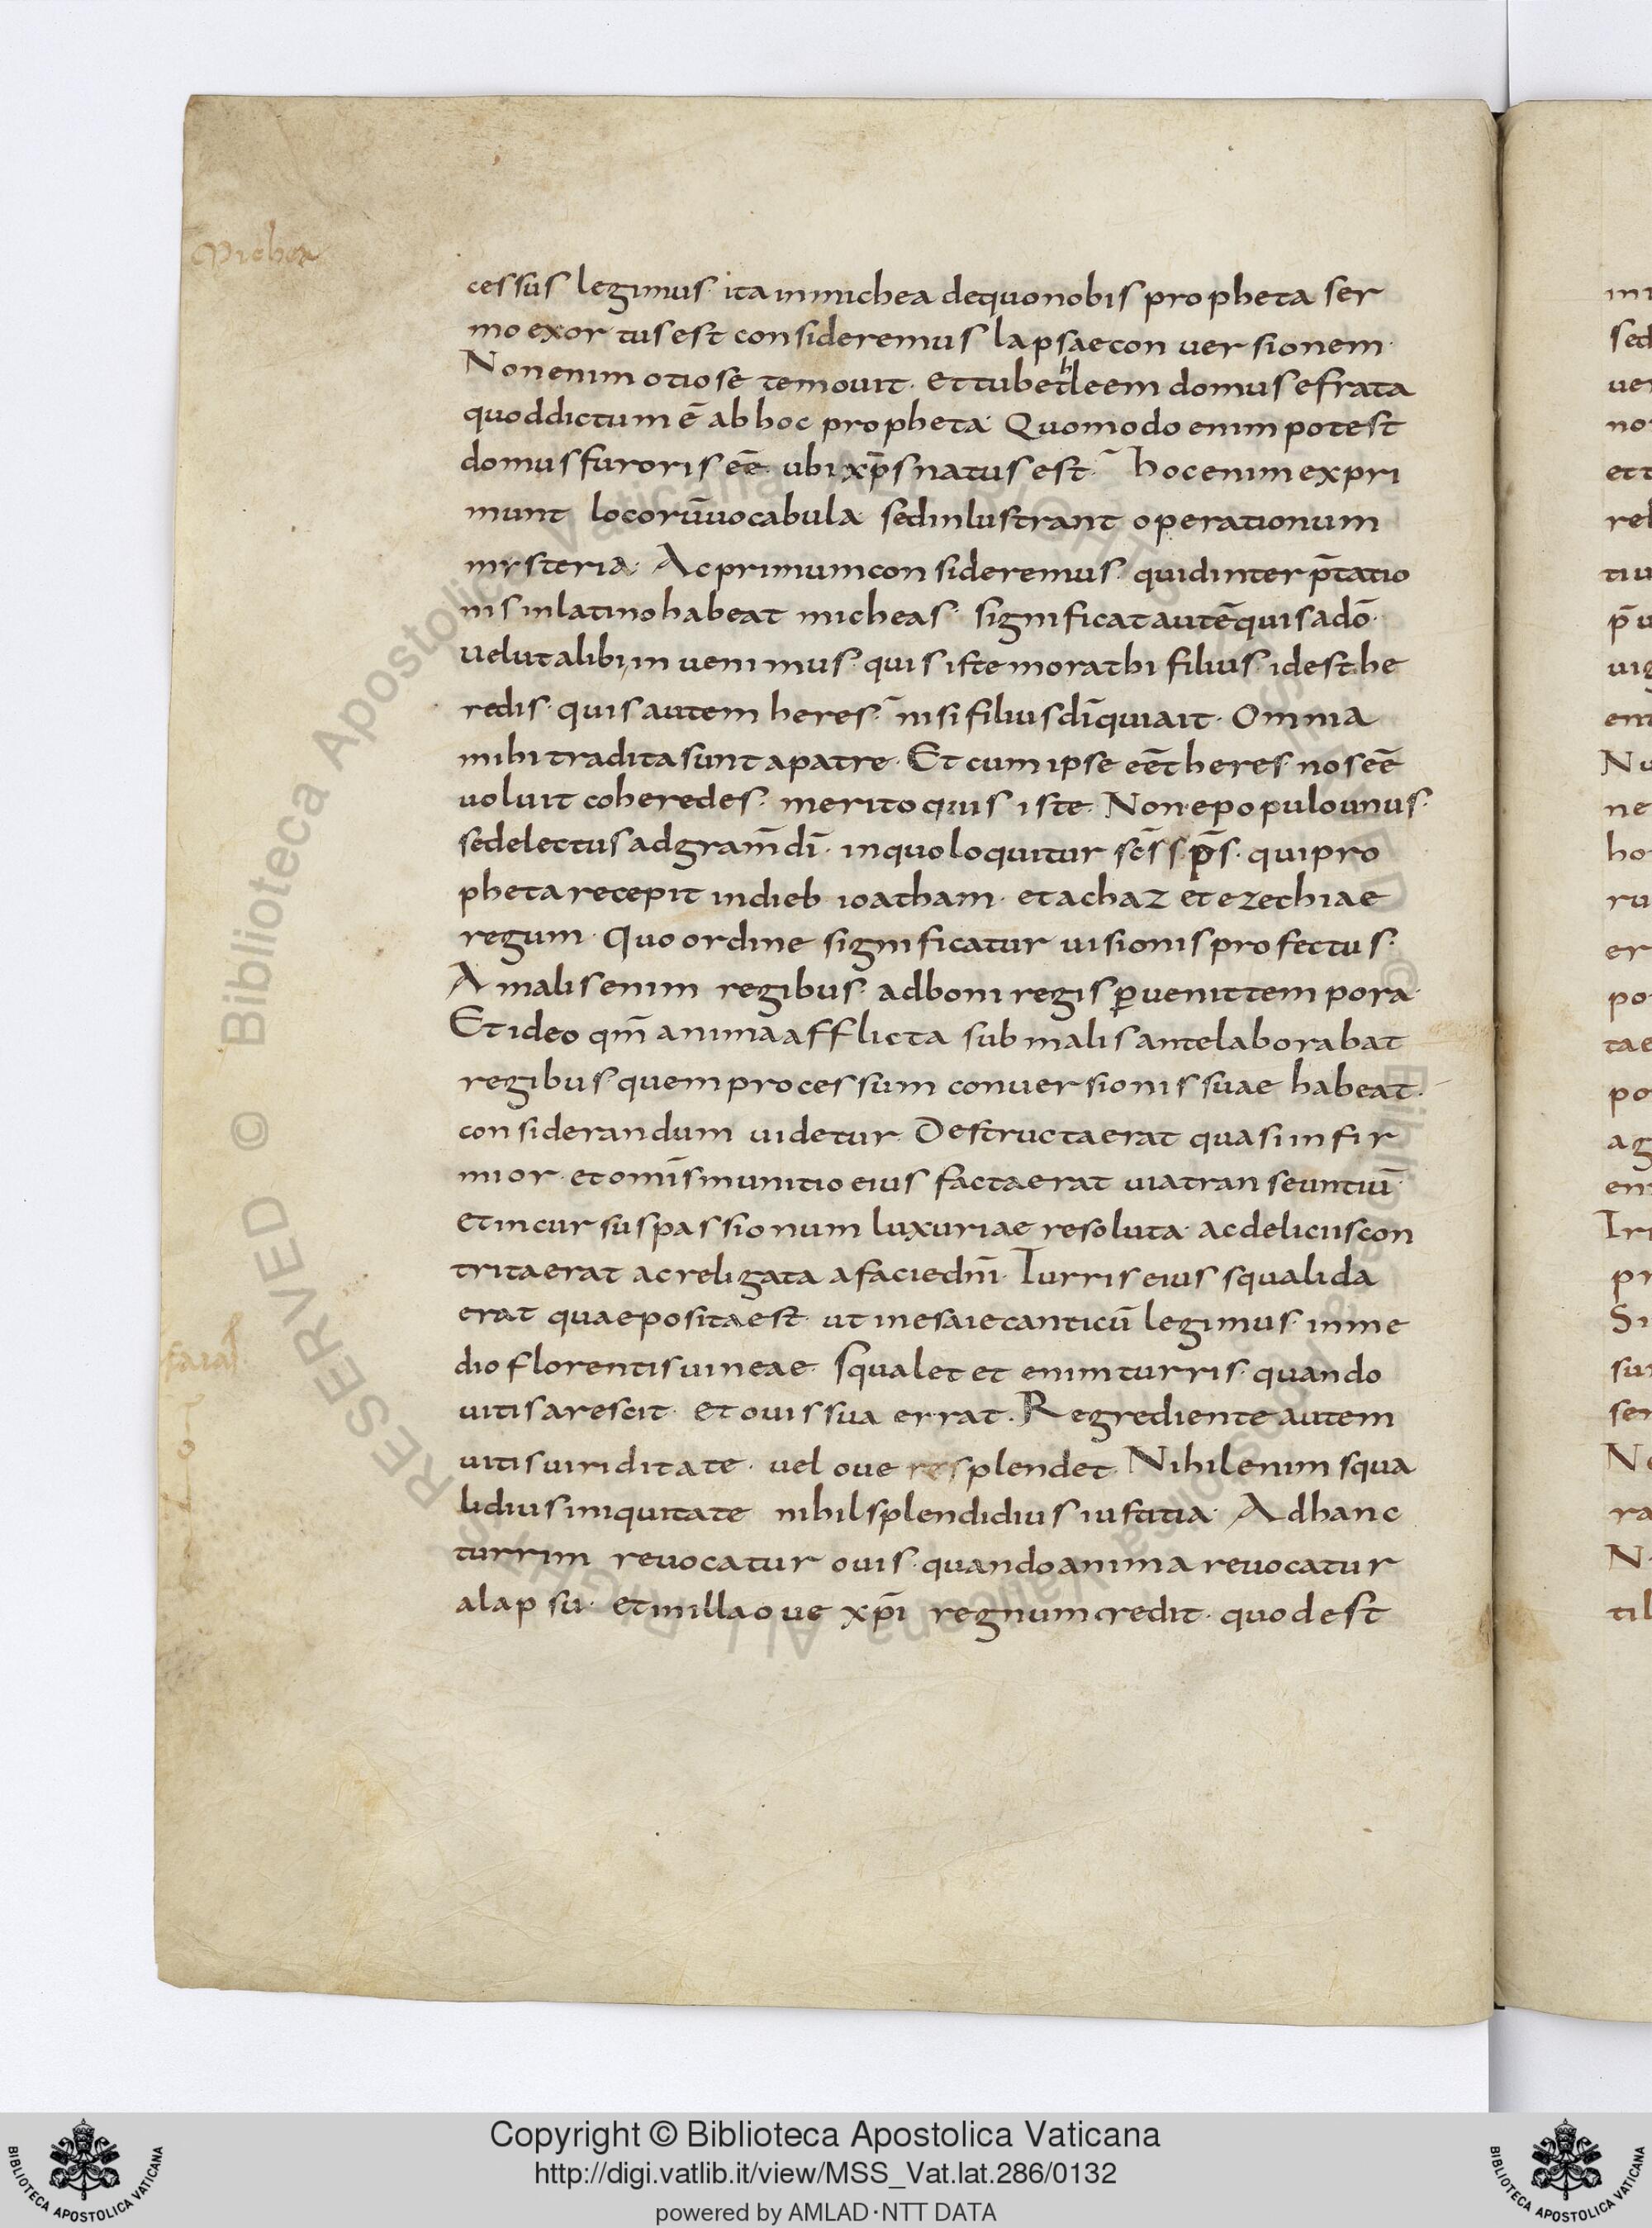 Michea
cessus legimus· ita in michea de quo nobis propheta ser
mo exortus est consideremus lapsae conuersionem·
Non enim otiose te mouit· et tu bethleem domus efrata
quod dictum ē ab hoc propheta· Quomodo enim potest
domus furoris eē· ubi xp̄s natus est· hoc enim expri
munt locorū uocabula· sed inlustrant operationum
mysteria· Ac primum consideremus· quid interp̄tatio
nis in latino habeat micheas· significat autē quis a dō·
uelut alibi inuenimus· quis iste morathi filius· id est he
redis· quis autem heres· nisi filius dī qui ait· Omnia
mihi tradita sunt a patre· Et cum ipse eēt heres nos eē
uoluit coheredes· merito quis iste· Non e populo unus·
sed electus ad gram̄ dī· in quo loquitur sc̄s sp̄s· qui pro
pheta recepit in dieb· ioatham· et achaz et ezechiae
regum· Quo ordine significatur uisionis profectus·
A malis enim regibus· ad boni regis ꝑuenit tempora·
Et ideo qm̄ anima afflicta sub malis ante laborabat
regibus· quem processum conuersionis suae habeat·
considerandum uidetur· Destructa erat quasi infir
mior· et omīs munitio eius facta erat uia transeuntiū·
et incursus passionum luxuriae resoluta· ac deliciis con
trita erat ac religata a facie dnī· Turris eius squalida
erat quae posita est· ut in esaie canticū legimus· in me
dio florentis uineae· squalet et enim turris· quando
uitis arescit· et ouis sua errat· Regrediente autem
uitis uiriditate· uel oue resplendet· Nihil enim squa
lidius iniquitate nihil splendidius iustitia· Ad hanc
turrim reuocatur ouis· quando anima reuocatur
a lapsu· et in illa oue xp̄i regnum credit· quod est
Copyright © Biblioteca Apostolica Vaticana
http://digi.vatlib.it/view/MSS_Vat.lat.286/0132
powered by AMLAD·NTT DATA